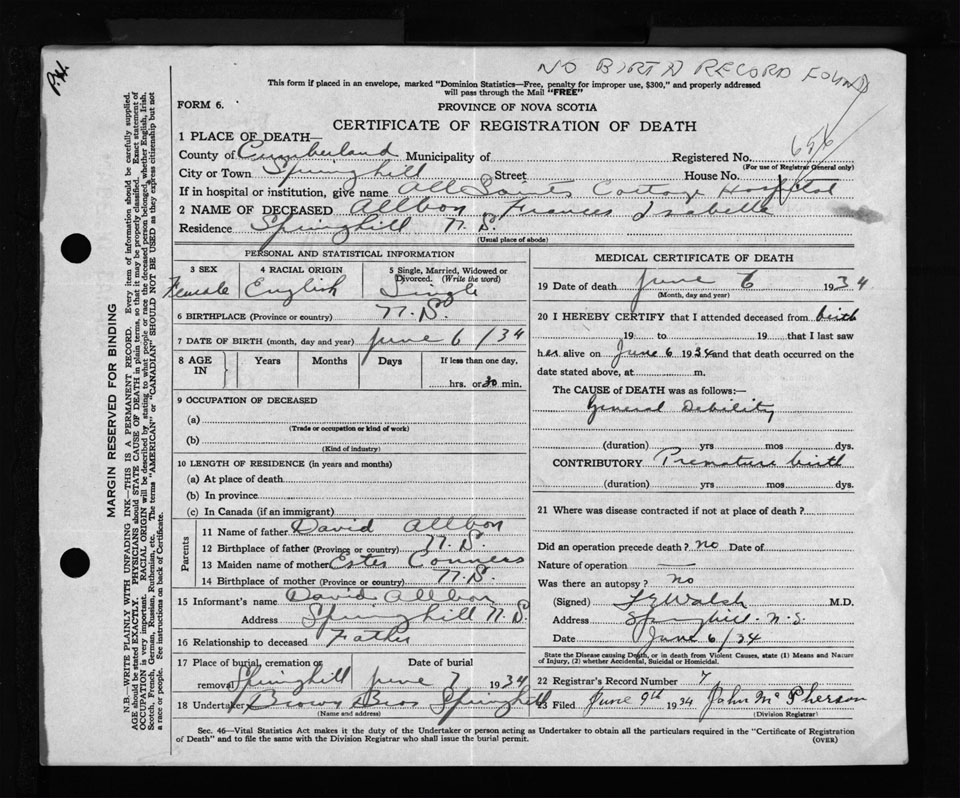 P.H.
NO BIRTH RECORD FOUND
This form if placed in an envelope, marked "Dominion Statistics—Free, penalty for improper use, $300," and properly addressed
will pass through the Mail "FREE"
FORM 6.
PROVINCE OF NOVA SCOTIA
CERTIFICATE OF REGISTRATION OF DEATH
656
1 PLACE OF DEATH—
County of Cumberland Municipality of Registered No.
(For use of Registrar General only)
City or Town Springhill Street House No.
If in hospital or institution, give name All Saints Cottage Hospital
2 NAME OF DECEASED Allbon Frances Isabelle
Residence Springhill N.S.
(Usual place of abode)
PERSONAL AND STATISTICAL INFORMATION
3 SEX
Female
4 RACIAL ORIGIN
English
5 Single, Married, Widowed or
Divorced. (Write the word)
Single
6 BIRTHPLACE (Province or country) N.S.
7 DATE OF BIRTH (month, day and year) June 6 /34
8 AGE IN Years Months Days If less than one day,
hrs. or 30 min.
9 OCCUPATION OF DECEASED
(a)
(Trade or occupation or kind of work)
(b)
(Kind of industry)
10 LENGTH OF RESIDENCE (in years and months)
(a) At place of death
(b) In province
(c) In Canada (if an immigrant)
Parents
11 Name of father David Allbon
12 Birthplace of father (Province or country) N.S.
13 Maiden name of mother Ester Conners
14 Birthplace of mother (Province or country) N.S.
15 Informant's name David Allbon
Address Springhill N.S.
16 Relationship to deceased Father
17 Place of burial, cremation or removal Springhill
Date of burial
June 7 1934
18 Undertaker Brown Bros Springhill
(Name and address)
MEDICAL CERTIFICATE OF DEATH
19 Date of death June 6 1934
(Month, day and year)
20 I HEREBY CERTIFY that I attended deceased from birth
19 to 19 that I last saw
her alive on June 6 1934 and that death occurred on the
date stated above, at m.
The CAUSE of DEATH was as follows:—
General Debility
(duration) yrs mos dys.
CONTRIBUTORY Premature birth
(duration) yrs mos dys.
21 Where was disease contracted if not at place of death?
Did an operation precede death? no Date of
Nature of operation —
Was there an autopsy? no
(Signed) Walsh M.D.
Address Springhill N.S.
Date June 6/34
State the Disease causing Death, or in death from Violent Causes, state (1) Means and Nature
of Injury, (2) whether Accidental, Suicidal or Homicidal.
22 Registrar's Record Number 7
23 Filed June 9th 1934 John McPherson
(Division Registrar)
Sec. 46—Vital Statistics Act makes it the duty of the Undertaker or person acting as Undertaker to obtain all the particulars required in the "Certificate of Registration
of Death" and to file the same with the Division Registrar who shall issue the burial permit.
(OVER)
MARGIN RESERVED FOR BINDING
N.B.—WRITE PLAINLY WITH UNFADING INK—THIS IS A PERMANENT RECORD. Every item of information should be carefully supplied.
AGE should be stated EXACTLY. PHYSICIANS should STATE CAUSE OF DEATH in plain terms, so that it may be properly classified. Exact statement of
OCCUPATION is very important. RACIAL ORIGIN will be described by stating to what people or race the deceased person belonged, whether English, Irish,
Scotch, French, German, Russian, Ruthenian, etc. The terms "AMERICAN" or "CANADIAN" SHOULD NOT BE USED as they express citizenship but not
a race or people. See instructions on back of Certificate.